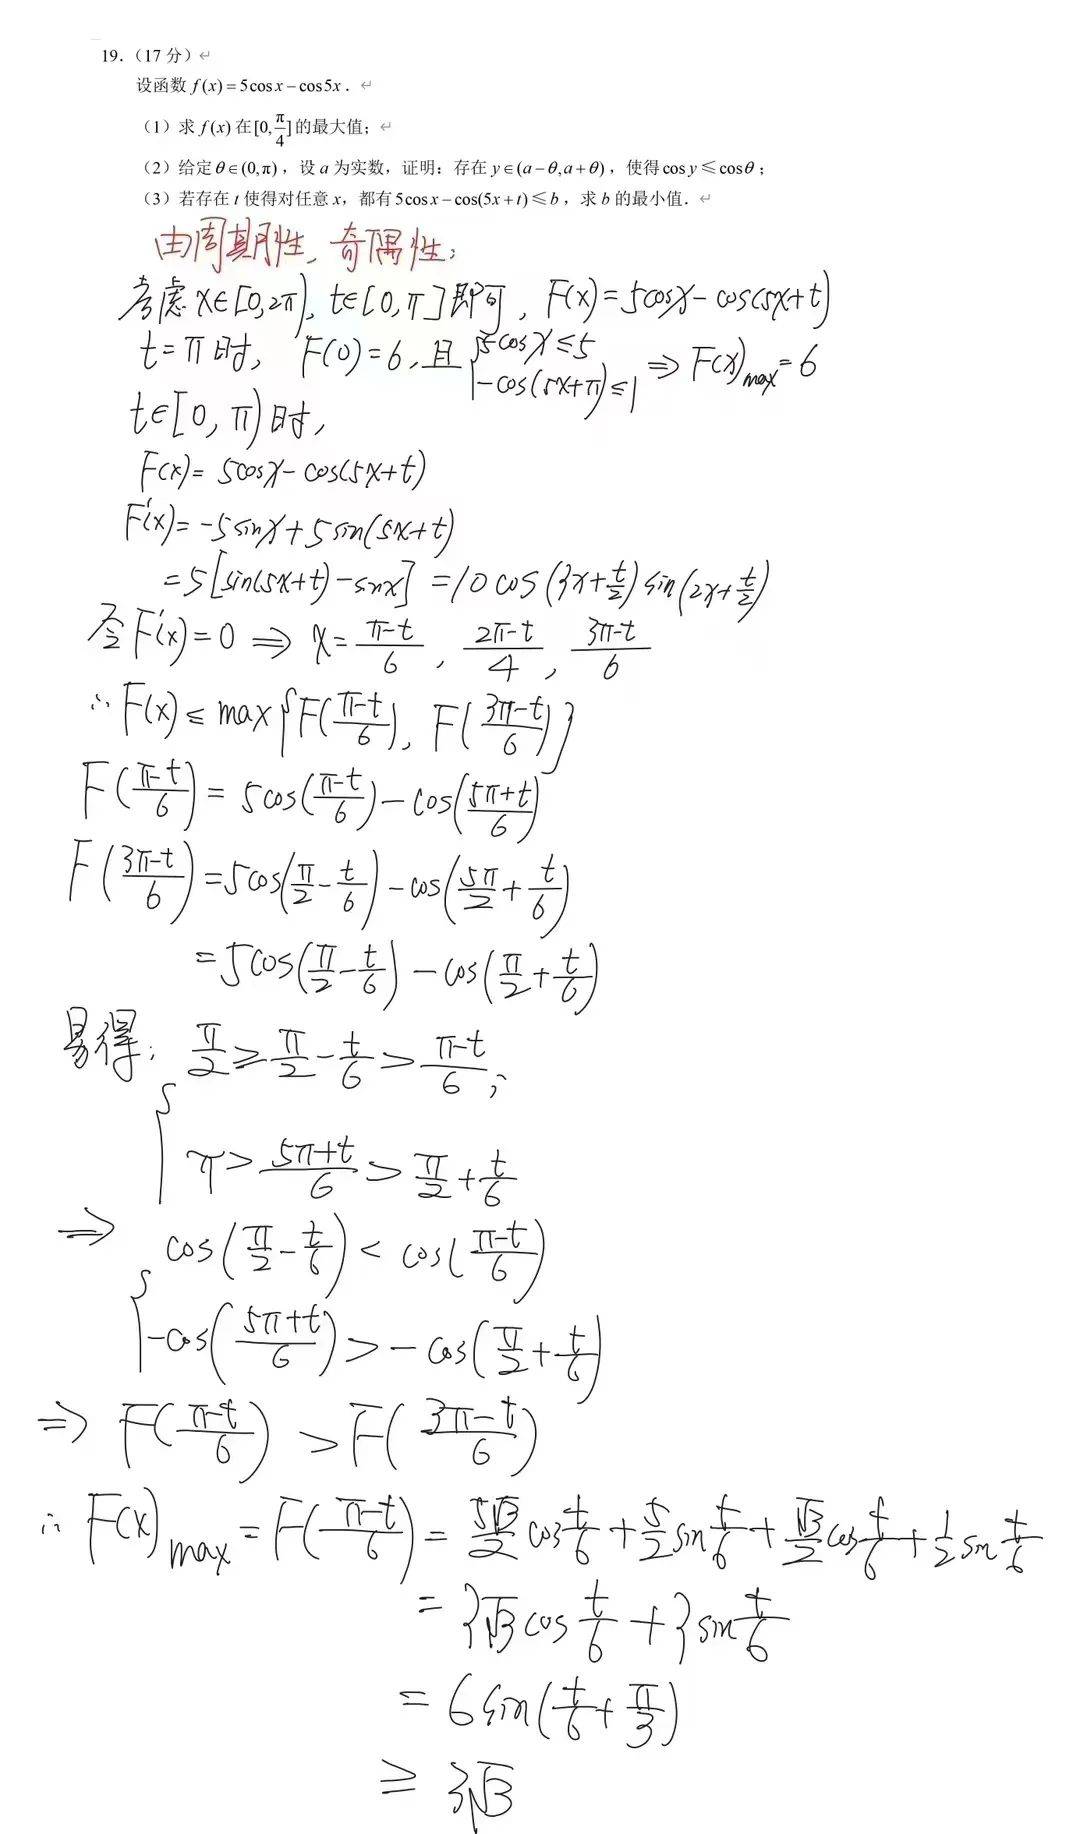 19.（17 分）↵
设函数 f(x)=5cosx−cos5x．↵
（1）求 f(x) 在[0,π/4]的最大值；↵
（2）给定θ∈(0,π)，设 a 为实数，证明：存在 y∈(a−θ,a+θ)，使得 cos y ≤ cosθ；
（3）若存在 t 使得对任意 x，都有 5cosx−cos(5x+t)≤b，求 b 的最小值．↵
由周期性，奇偶性：
考虑 x∈[0,2π), t∈[0,π]即可，F(x)=5cosx−cos(5x+t)
t=π时，F(0)=6，且{5cosx≤5 −cos(5x+π)≤1 ⇒ F(x)max=6
t∈[0,π)时，
F(x)=5cosx−cos(5x+t)
F'(x)=−5sinx+5sin(5x+t)
=5[sin(5x+t)−sinx]=10cos(3x+t/2)sin(2x+t/2)
令F'(x)=0 ⇒ x=(π−t)/6, (2π−t)/4, (3π−t)/6
∴F(x)≤max{F((π−t)/6), F((3π−t)/6)}
F((π−t)/6)=5cos((π−t)/6)−cos((5π+t)/6)
F((3π−t)/6)=5cos(π/2−t/6)−cos(5π/2+t/6)
=5cos(π/2−t/6)−cos(π/2+t/6)
易得：{π/2≥π/2−t/6>(π−t)/6;
π>(5π+t)/6>π/2+t/6
⇒ {cos(π/2−t/6)<cos((π−t)/6)
−cos((5π+t)/6)>−cos(π/2+t/6)
⇒ F((π−t)/6)>F((3π−t)/6)
∴F(x)max=F((π−t)/6)=5√3/2 cos t/6+5/2 sin t/6+√3/2 cos t/6+1/2 sin t/6
=3√3cos t/6+3sin t/6
=6sin(t/6+π/3)
≥3√3